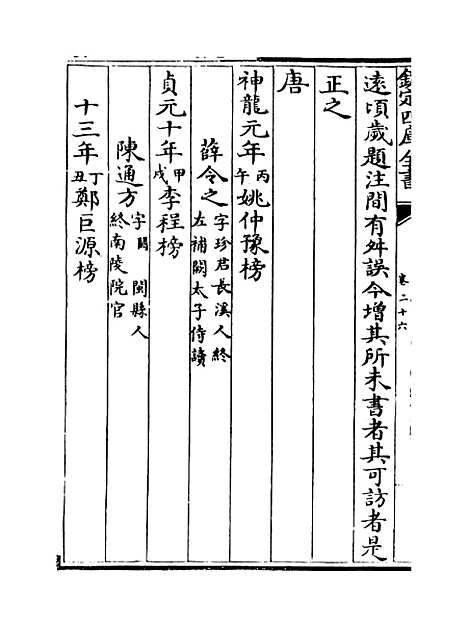 欽定四庫全書
卷二十六
遠頃歲題注間有舛誤今增其所未書者其可訪者是
正之
唐
神龍元年丙午姚仲豫榜
薛令之字珍君長溪人終左補闕太子侍讀
貞元十年甲戌李程榜
陳通方字閩縣人終南陵院官
十三年丁丑鄭巨源榜